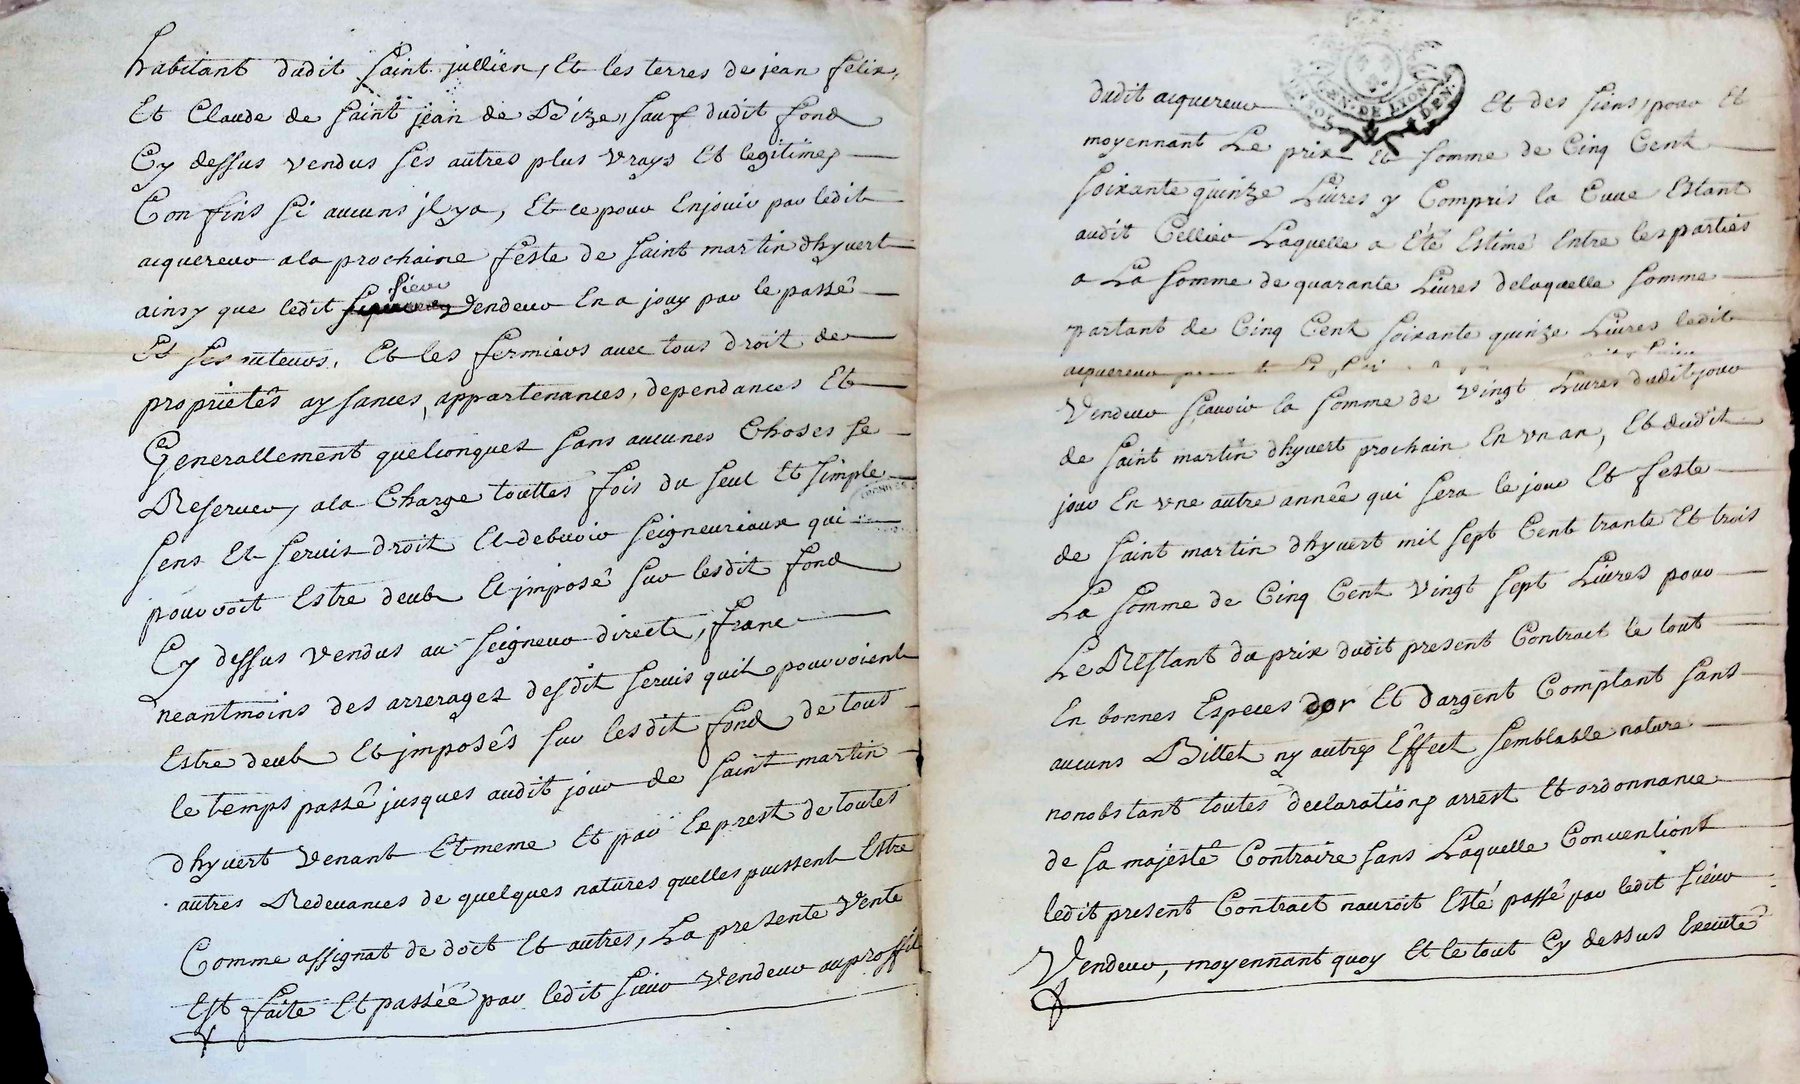 habitant dudit Saint jullien, Et les terres de jean felix,
Et Claude de Saint jean de Bize, sauf dudit fond
Cy dessus vendus ses autres plus vrays Et legitimes
Confins si aucuns jl ya, Et ce pour Enjouir par ledit
acquereur ala prochaine feste de Saint martin dhyvert
ainsy que ledit Sieur Vendeur En a jouy par le passé
Et ses auteurs, Et les fermiers avec tous droit de
proprietés aysances, appartenances, dependances Et
Generallement quelconques sans aucunes Choses se
Reserver, ala Charge touttes fois du seul Et simple
sens Et servis droit Et debvoir seigneuriaux qui
pourroit Estre deub Et jmposé sur lesdit fond
Cy dessus vendus au seigneur directe, franc
neantmoins des arrerages desdit servis quil pourroient
Estre deub Et jmposés sur lesdit fond de tous
le temps passé jusques audit jour de Saint martin
dhyvert venant Et meme Et par Exprest de toutes
autres Redevances de quelques natures quelles puissent Estre
Comme assignat de doct Et autres, La presente Vente
Est faite Et passée par ledit sieur Vendeur auproffit
GEN. DE LION
dudit acquereur Et des siens, pour Et
moyennant Le prix Et somme de Cinq Cent
soixante quinze Livres y Compris la Cuve Estant
audit Cellier Laquelle a Été Estimé Entre les parties
a La somme de quarante Livres delaquelle somme
partant de Cinq Cent soixante quinze Livres ledit
acquereur
Vendeur scavoir la somme de vingt Livres dudit jour
de Saint martin dhyvert prochain En vn an, Et dudit
jour En vne autre année qui sera le jour Et feste
de Saint martin dhyvert mil sept Cent trante Et trois
La somme de Cinq Cent vingt sept Livres pour
Le Réstant du prix dudit present Contract le tout
En bonnes Especes dor Et dargent Comptant sans
aucuns Billet ny autres Éffect semblable nature
nonobstant toutes declarations arrest Et ordonnance
de sa majesté Contraire sans Laquelle Conventions
ledit present Contract nauroit Esté passé par ledit sieur
Vendeur, moyennant quoy Et le tout Cy dessus Executé